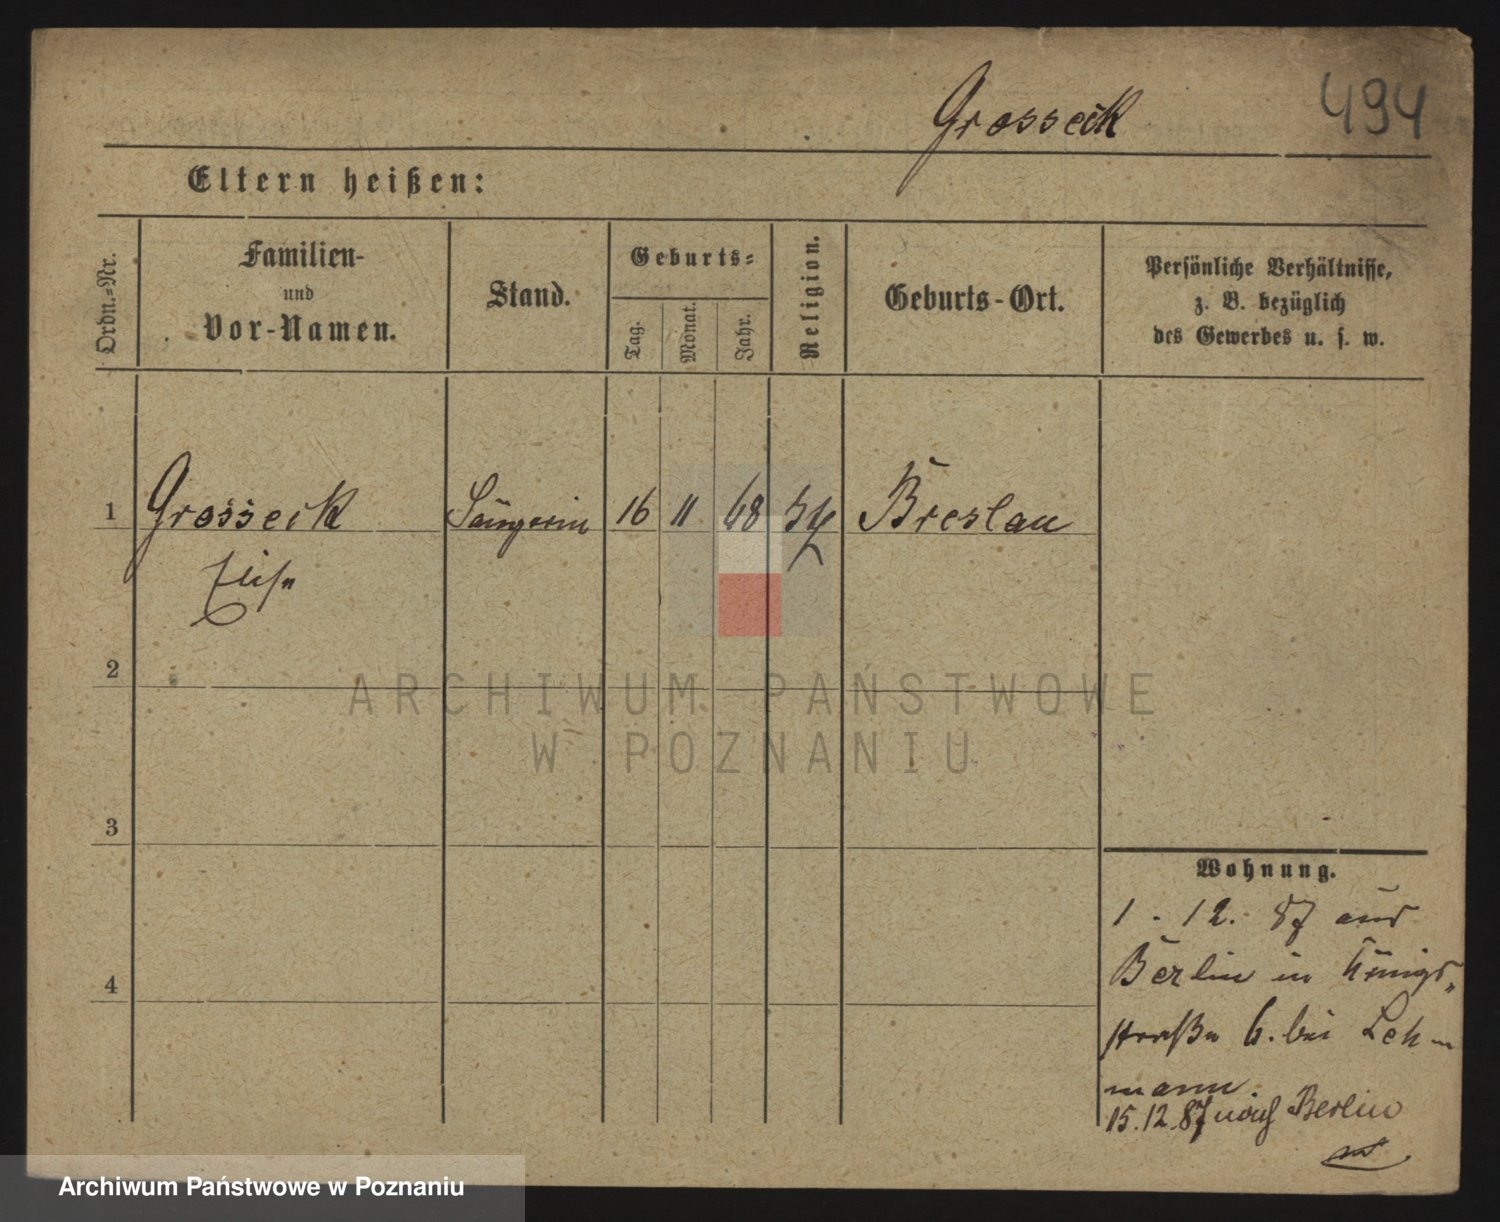 Grosseck
494
Eltern heißen:
Ordn.-Nr.
Familien-
und
Vor-Namen.
Stand.
Geburts-
Tag.
Monat.
Jahr.
Religion.
Geburts-Ort.
Persönliche Verhältnisse,
z. B. bezüglich
des Gewerbes u. s. w.
1 Grosseck Sängerin 16 11 68 Breslau
Elise
2
3
4
Wohnung.
1. 12. 87 aus
Berlin in Königs-
straße 6. bei Leh-
mann.
15.12.87 nach Berlin
ARCHIWUM PAŃSTWOWE
W POZNANIU
Archiwum Państwowe w Poznaniu